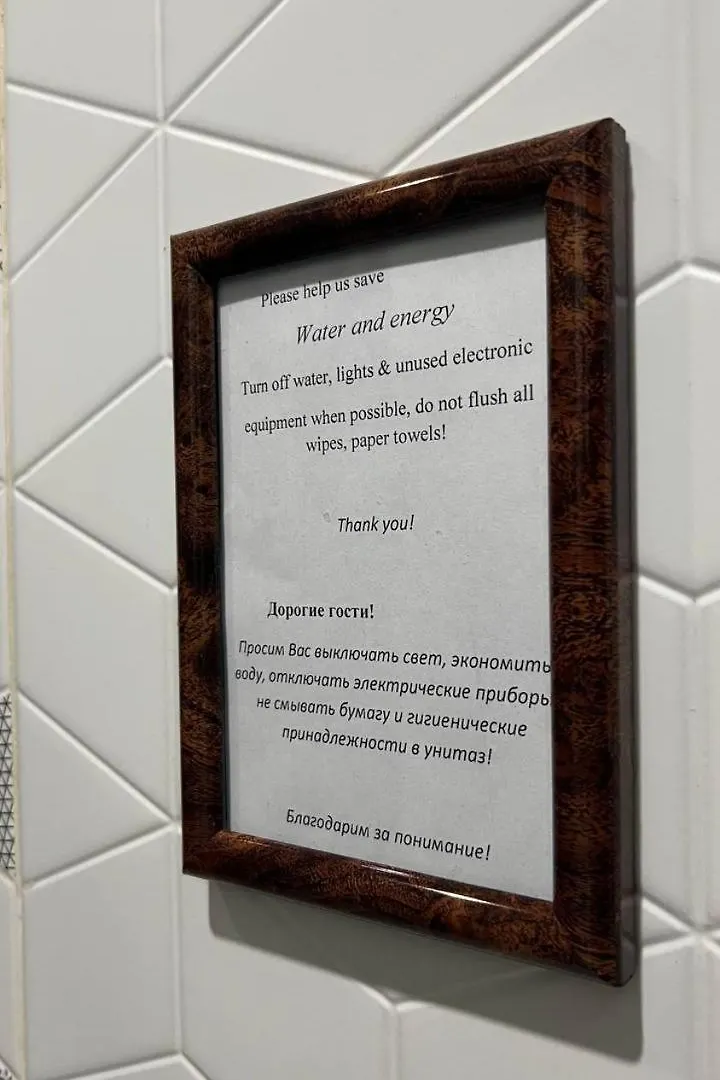 Please help us save
Water and energy
Turn off water, lights & unused electronic
equipment when possible, do not flush all
wipes, paper towels!
Thank you!
Дорогие гости!
Просим Вас выключать свет, экономить
воду, отключать электрические приборы
не смывать бумагу и гигиенические
принадлежности в унитаз!
Благодарим за понимание!